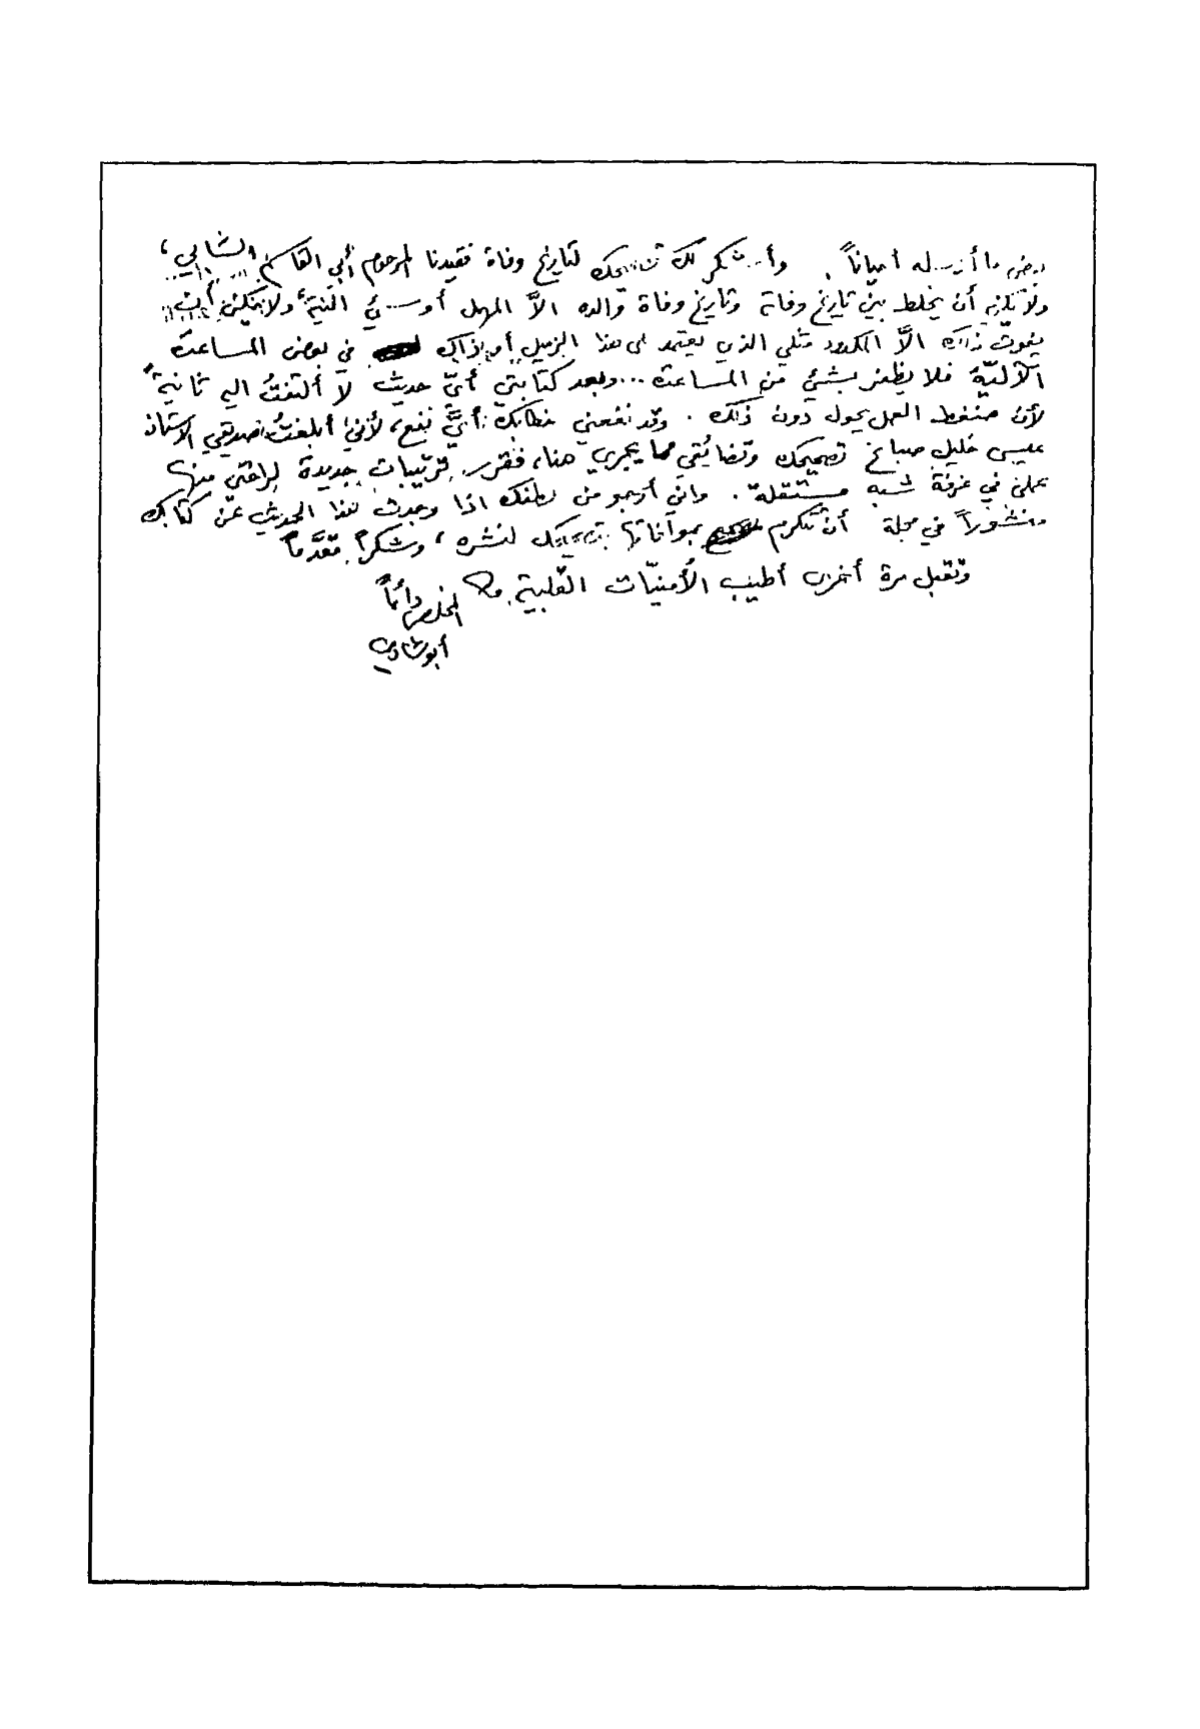 بعض ما أرسله أحياناً. وأشكر لك تصحيحك لتاريخ وفاة فقيدنا المرحوم أبي القاسم الشابي،
أن يخلط بين تاريخ وفاته وتاريخ وفاة والده الاَّ المهمل أو سيّئ النية، ولا يمكن أن
يفوت ذلك الاَّ المكدود مثلي الذي يعتمد على هذا الزميل أو ذاك في بعض المساعدة
الآلية فلا يظفر بشيء من المساعدة... وبعد كتابتي أيّ حديث لا ألتفتُ اليه ثانيةً
لأن ضغط العمل يحول دون ذلك. وقد نفعني خطابك أيَّ نفع، لأني أبلغتُ صديقي الاستاذ
عيسى خليل صباغ تصحيحك وتضايقي مما يجري هنا، فقرر ترتيبات جديدة لراحتي منها
عملي في غرفة شبه مستقلة. واني أرجو من لطفك اذا وجدت هذا الحديث عن كتابك
منشوراً في مجلة أن تتكرم بموافاتها بتصحيحك لنشره، وشكراً مقدَّماً
وتقبل مرة أخرى أطيب الأمنيّات القلبية.
المخلص دائماً
أبو شادي